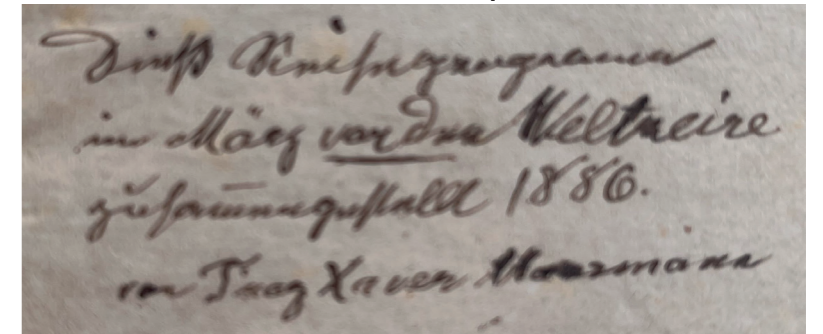 Dieß Reiseprogramm
im März vor der Weltreise
zusammengestellt 1886.
von Franz Xaver